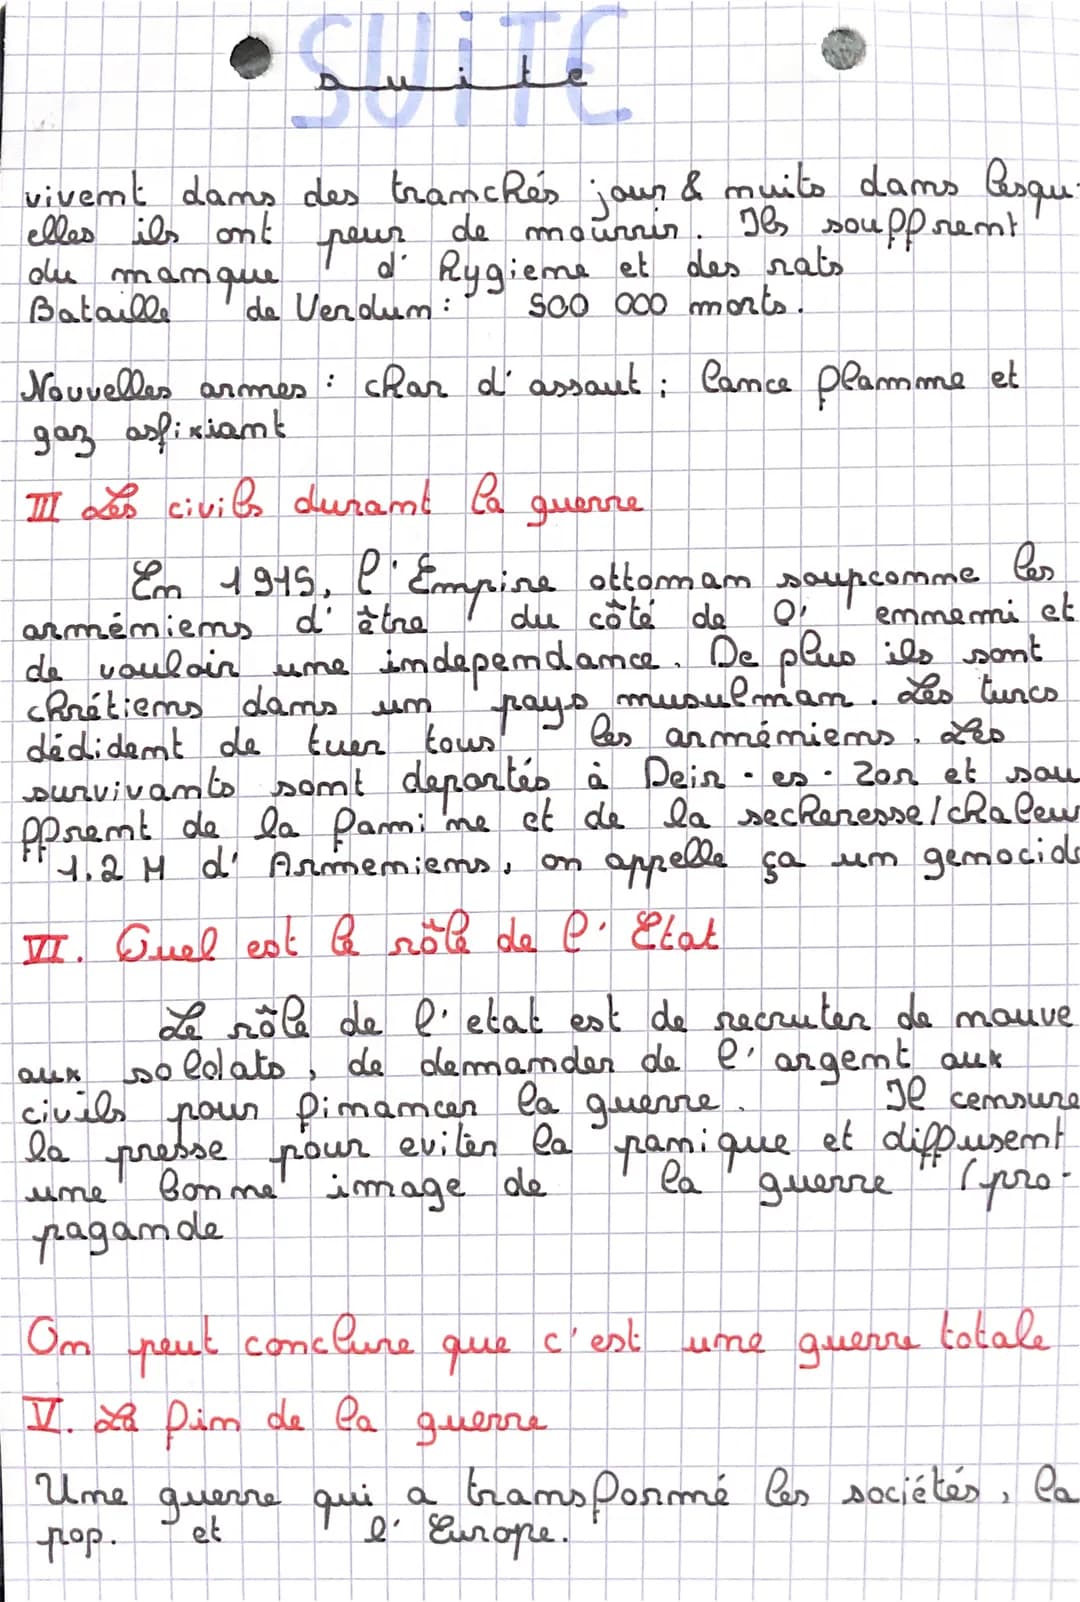 SUITE
suite
vivent dans des tranchés jour & nuits dans lesqu-
elles ils ont peur de mourrir. Ils souffrent
du manque d'hygiene et des rats
Bataille de Verdum : 500 000 morts.
Nouvelles armes : char d'assaut ; lance flamme et
gaz asfixiant
III Les civils durant la guerre
En 1915, l'Empire ottoman soupconne les
arméniens d'être du côté de l'ennemi et
de vouloir une independance. De plus ils sont
chrétiens dans un pays musulman. Les turcs
dédident de tuer tous les arméniens. Les
survivants sont deportés à Deir-es-Zor et sou
ffrent de la famine et de la secheresse/chaleur
1.2 M d'Armeniens, on appelle ça um genocide
VI. Quel est le rôle de l'Etat
Le rôle de l'etat est de recruter de nouve
aux soldats, de demander de l'argent aux
civils pour financer la guerre. Il censure
la presse pour eviter la panique et diffusent
une bonne image de la guerre (pro-
pagande
On peut conclure que c'est une guerre totale
V. La fin de la guerre
Une guerre qui a transformé les sociétés, la
pop. et l'Europe.